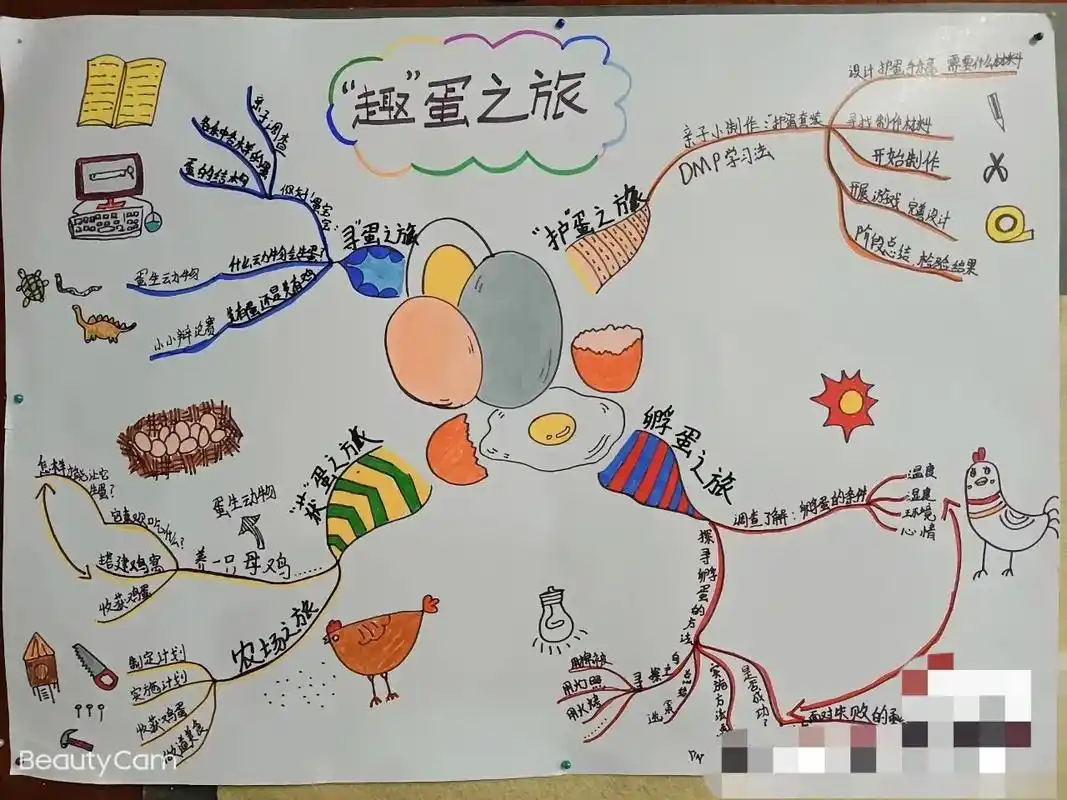 "趣"蛋之旅
"寻"蛋之旅
亲子调查
蛋的结构
什么动物会生蛋?
蛋生动物
先有蛋还是先有鸡
小小辩论赛
"护"蛋之旅
亲子小制作:"护蛋套装"
DMP学习法
设计护蛋方案 需要什么材料
寻找制作材料
开始制作
开展游戏 完善设计
阶段总结 检验结果
"获"蛋之旅
蛋生动物
养一只母鸡
怎样
生蛋?
它喜欢吃什么?
搭建鸡窝
收获鸡蛋
农场之旅
制定计划
实施计划
收获鸡蛋
美食
孵蛋之旅
调查了解:孵蛋的条件
温度
湿度
环境
心情
探寻孵蛋的方法
用棉被
用灯照
是否成功?
面对失败的
BeautyCam